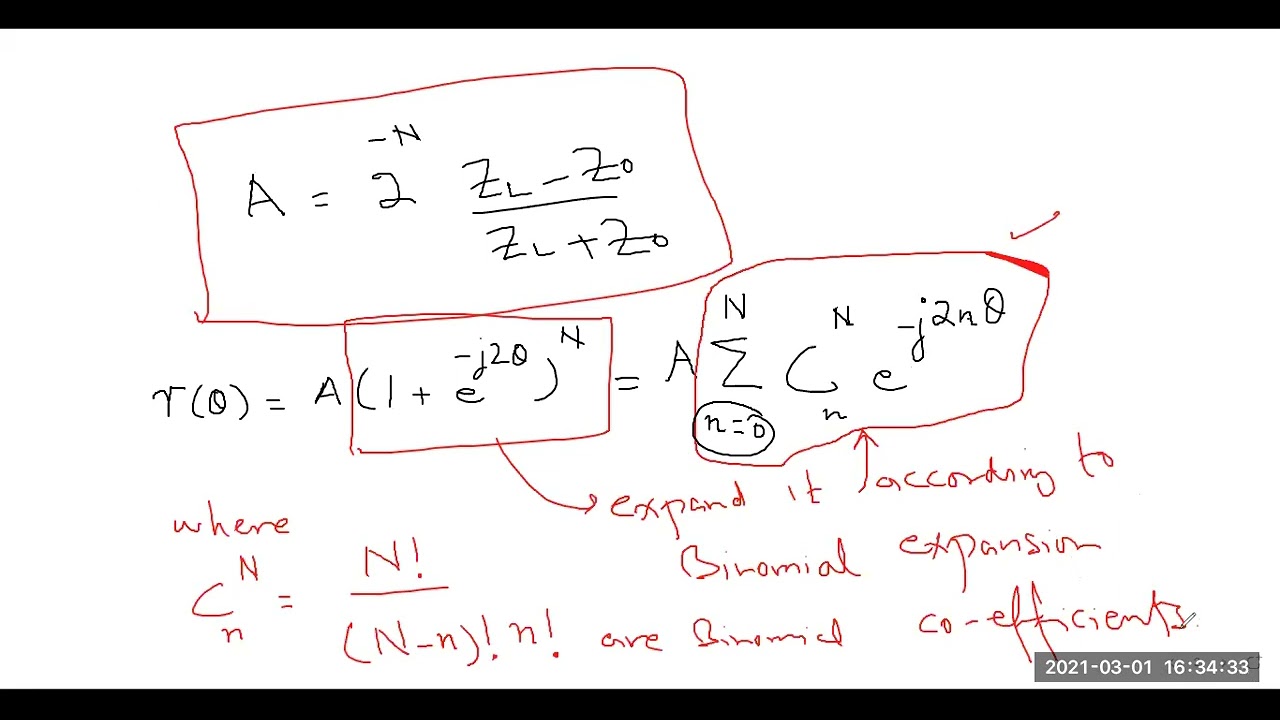 A = 2^{-N} \frac{Z_L - Z_0}{Z_L + Z_0}
Γ(θ) = A(1 + e^{-j2θ})^N = A \sum_{n=0}^{N} C_n^N e^{-j2nθ}
expand it according to
Binomial expansion
where
C_n^N = \frac{N!}{(N-n)! n!} are Binomial co-efficients
2021-03-01 16:34:33